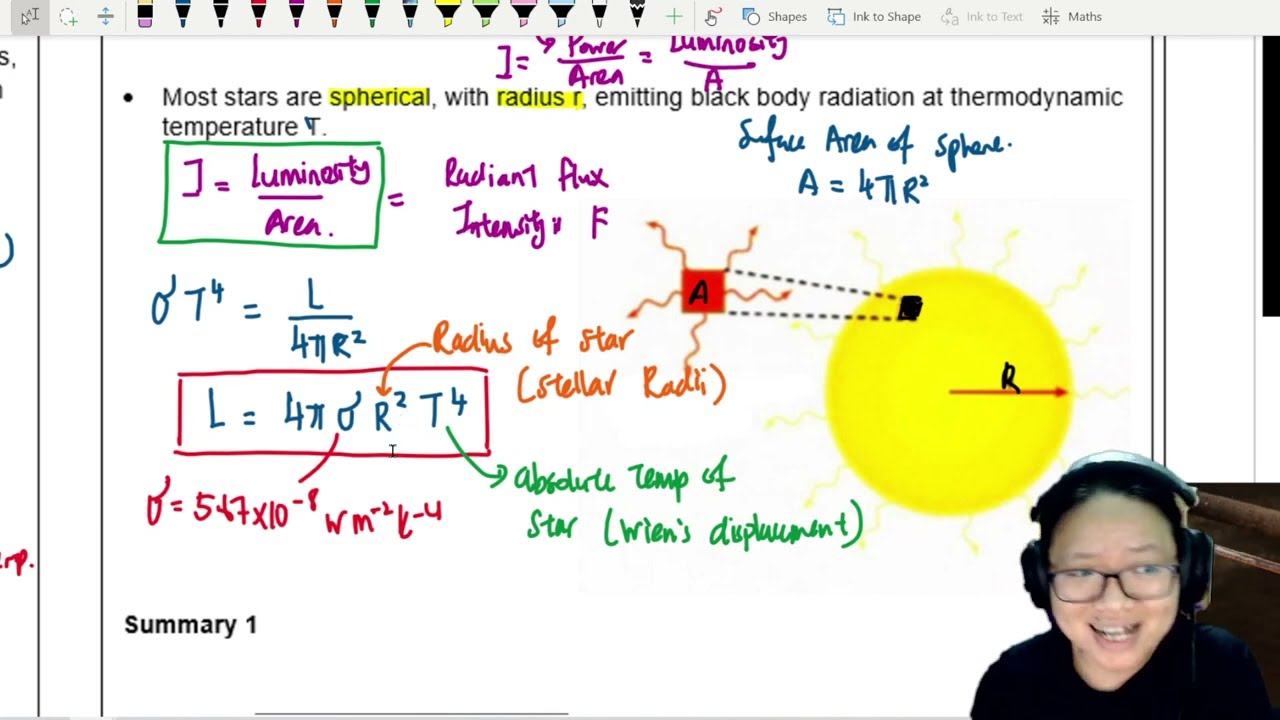 Shapes
Ink to Shape
Ink to Text
Maths
s,
I = Power / Area = Luminosity / A
• Most stars are spherical, with radius r, emitting black body radiation at thermodynamic
temperature T.
Surface Area of sphere.
A = 4πR²
I = Luminosity / Area. = Radiant flux
Intensity, F
σT⁴ = L / 4πR²
A
R
Radius of star
(stellar Radii)
L = 4πσR²T⁴
Absolute Temp of
star (Wien's displacement)
σ = 5.67×10⁻⁸ W m⁻² K⁻⁴
Summary 1